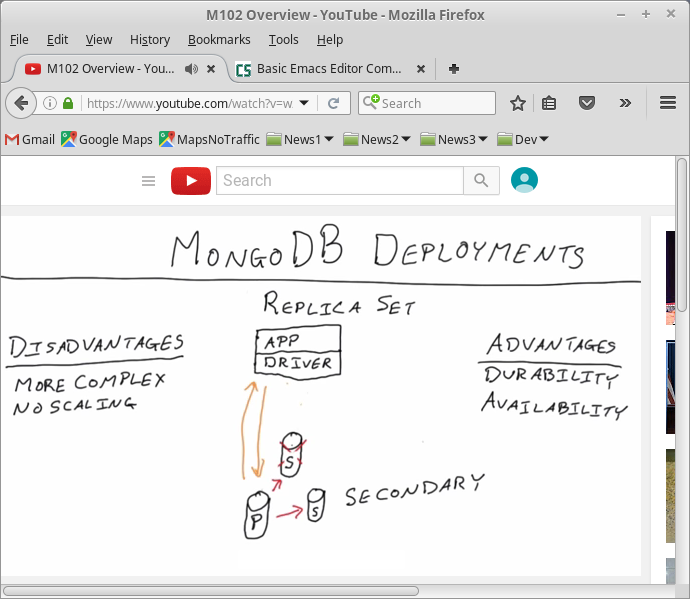 M102 Overview - YouTube - Mozilla Firefox
File Edit View History Bookmarks Tools Help
M102 Overview - You...
Basic Emacs Editor Com...
https://www.youtube.com/watch?v=w
Search
Gmail Google Maps MapsNoTraffic News1 News2 News3 Dev
Search
MONGODB DEPLOYMENTS
REPLICA SET
DISADVANTAGES
MORE COMPLEX
NO SCALING
APP
DRIVER
ADVANTAGES
DURABILITY
AVAILABILITY
S
P
S
SECONDARY